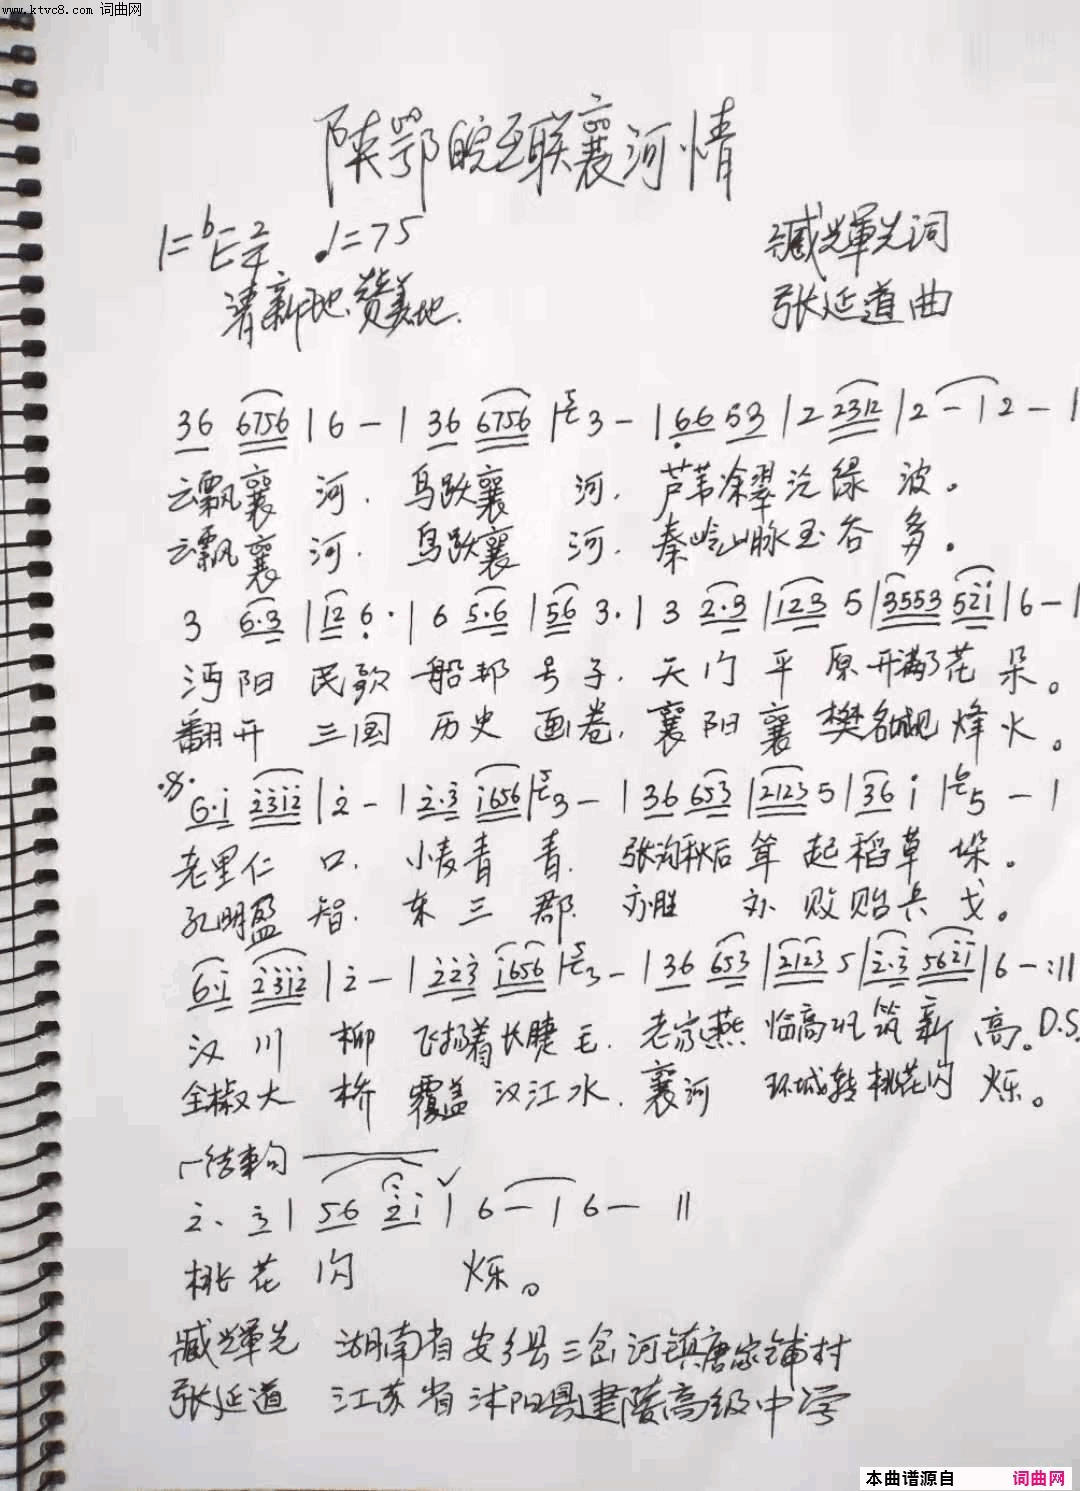 www.ktvc8.com 词曲网
陕鄂皖互联襄河情
1=bE 2/4 ♩=75 臧輝光词
清新地、赞美地. 张延道曲
36 6756 | 6 - | 36 6756 | 3 - | 66 53 | 2 2312 | 2 - | 2 - |
云飘襄河. 鸟跃襄河. 芦苇涂翠泛绿波。
云飘襄河. 鸟跃襄河. 秦岭山脉玉谷多.
3 6·3 | 12 6· | 6 5·6 | 56 3· | 3 2·3 | 123 5 | 3553 52i | 6 - |
沔阳民歌船邦号子. 天门平原开满了花朵。
翻开三国历史画卷. 襄阳襄樊名城觇烽火。
6·i 2312 | 2 - | 2·3 i656 | 3 - | 36 653 | 2123 5 | 36 i | 5 - |
老里仁口. 小麦青青. 张沟秋后耸起稻草垛。
孔明盈智. 东三郡. 亦胜亦败贻兵戈。
6·i 2312 | 2 - | 223 i656 | 3 - | 36 653 | 2123 5 | 2·3 562i | 6 - :||
汉川柳飞扬着长睫毛. 老家燕临高 筑新高。D.S.
全椒大桥覆盖汉江水. 襄河环城转桃花闪烁。
结束句
2· 3 | 56 2i | 6 - | 6 - ||
桃花闪烁。
臧輝光 湖南省安乡县三岔河镇唐家铺村
张延道 江苏省沭阳县建陵高级中学
本曲谱源自 词曲网